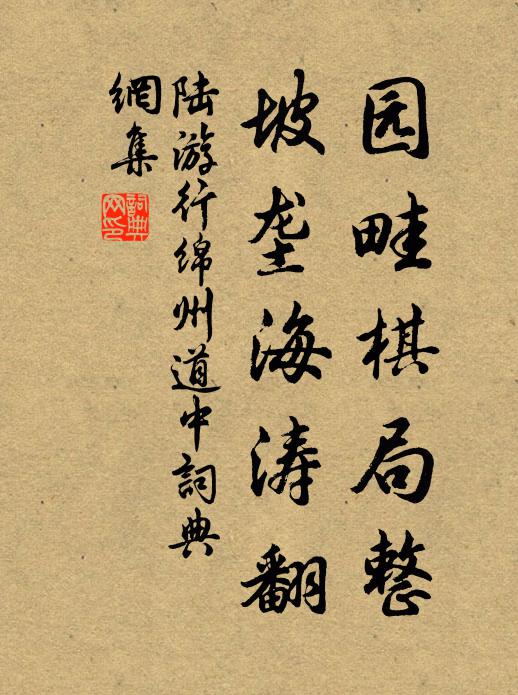 园畦棋局整
坡垄海涛翻
陆游行绵州道中詞典
網集
詞典
网印